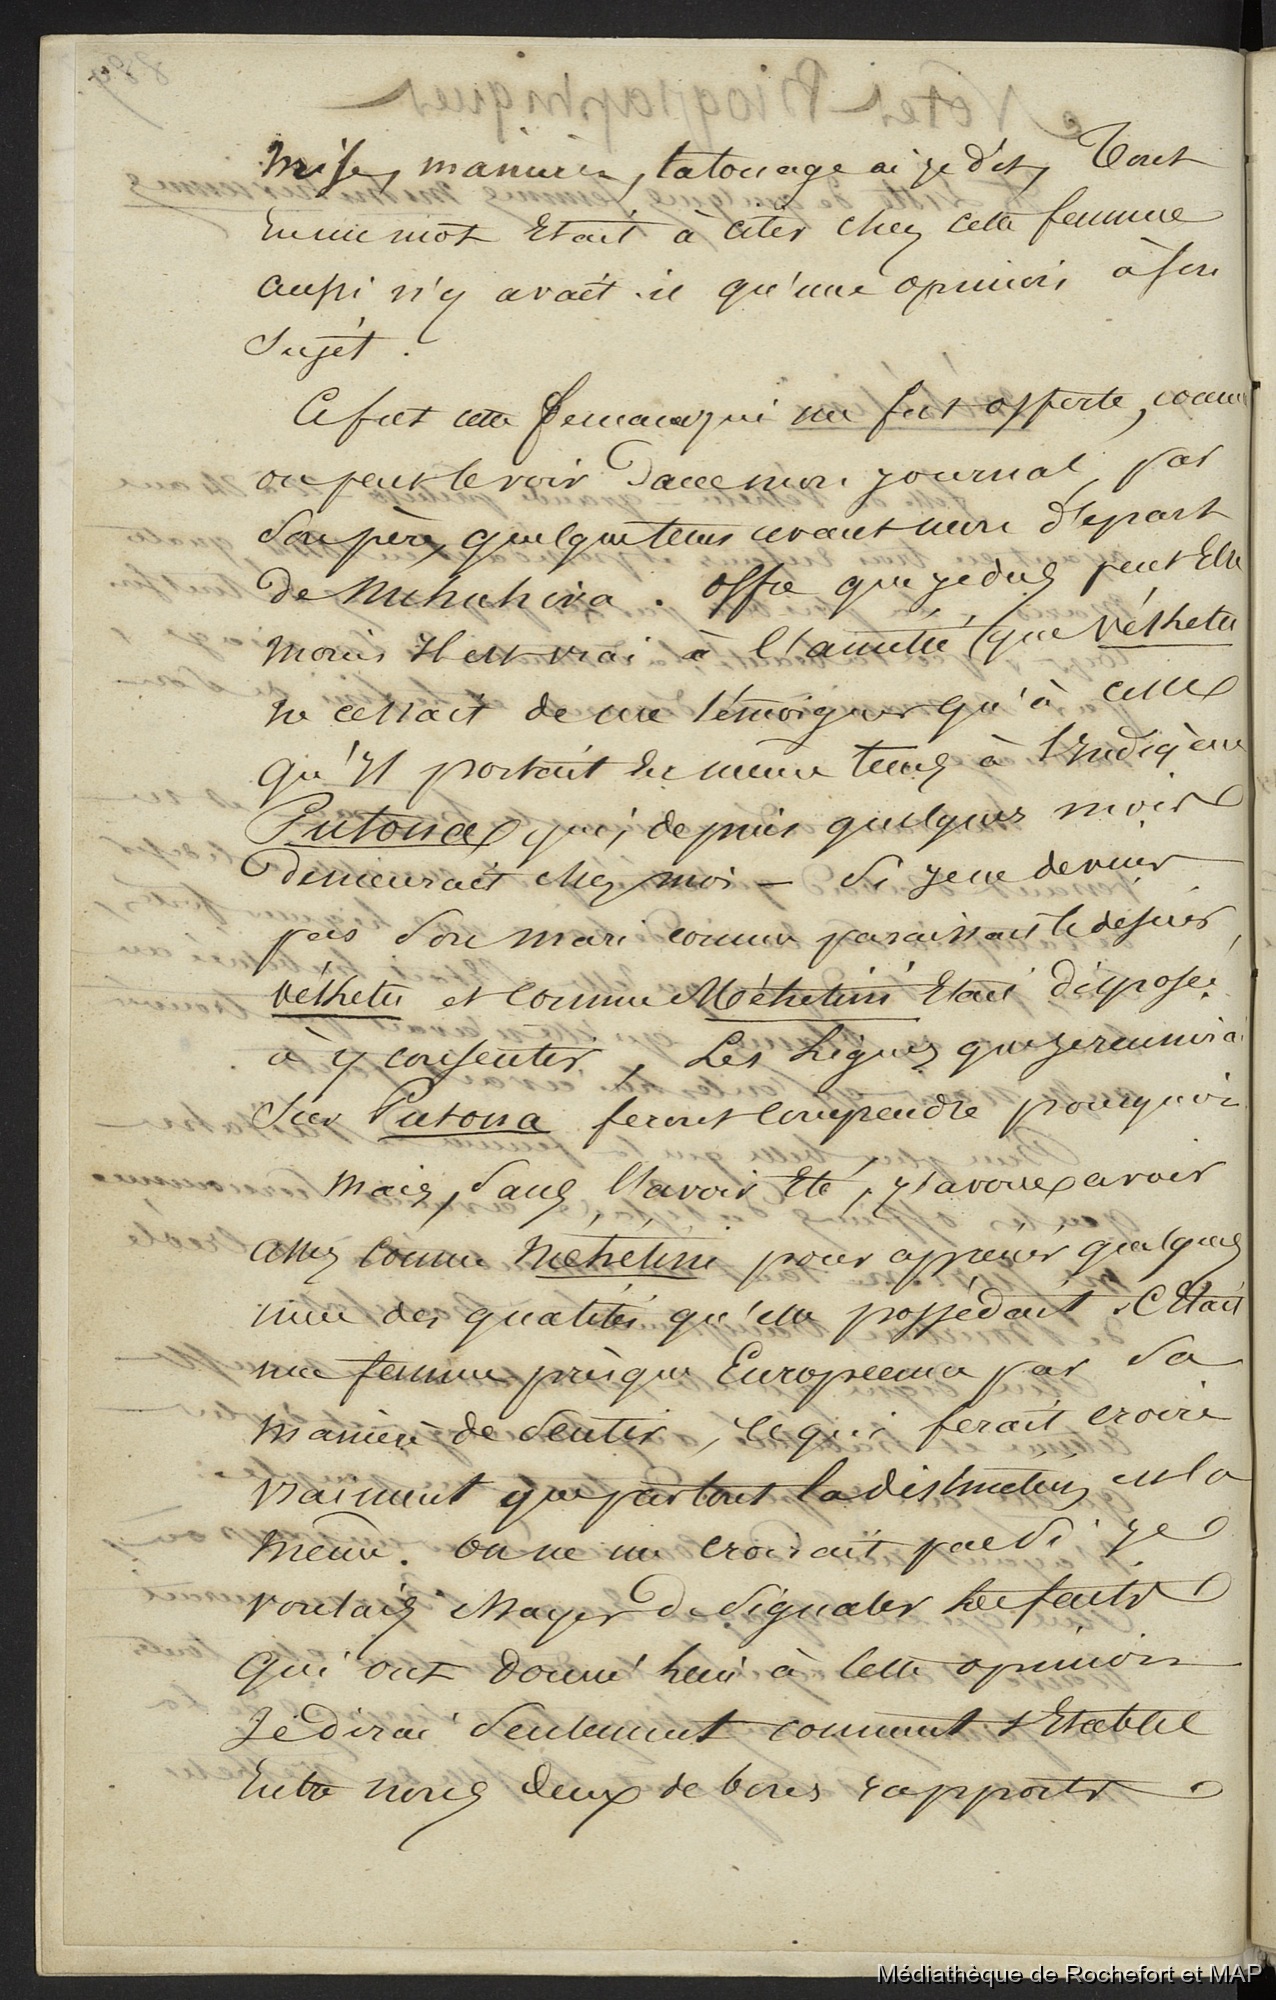 mise, manières, tatouage ai je dit, Tout
En un mot Etait à citer chez cette femme
aussi n'y avait-il qu'une opinion à son
Sujet.
Ce fut cette femme qui me fut offerte, comme
on peut le voir Dans mon journal, par
Son père, quelque tems avant mon départ
De Nukuhiva. Offre que je dus peut Etre
moins Il est vrai à l'amitié que Véhetu
ne cessait de me témoigner qu'à celle
qu'Il portait En même tems à l'Indigène
Putona qui, depuis quelques mois
Demeurait chez moi — Si je ne devins
pas Son mari comme paraissait le désirer,
Véhetu et comme Méhetini Etait disposée
à y consentir, Les Lignes que je réunirai
Sur Putona feront comprendre pourquoi
Mais, Sans l'avoir Eté, j'avoue avoir
assez connu Mehetini pour apprécier quelques
unes des qualités qu'elle possédait. C'Etait
une femme presque Européenne par Sa
manière de Sentir, Ce qui ferait croire
vraiment que partout la distinction est la
même. On ne me croirait pas Si je
voulais Essayer De Signaler les faits
qui ont donné lieu à cette opinion
Je dirai Seulement comment s'Etablit
Entre nous deux de bons rapports.
Médiathèque de Rochefort et MAP